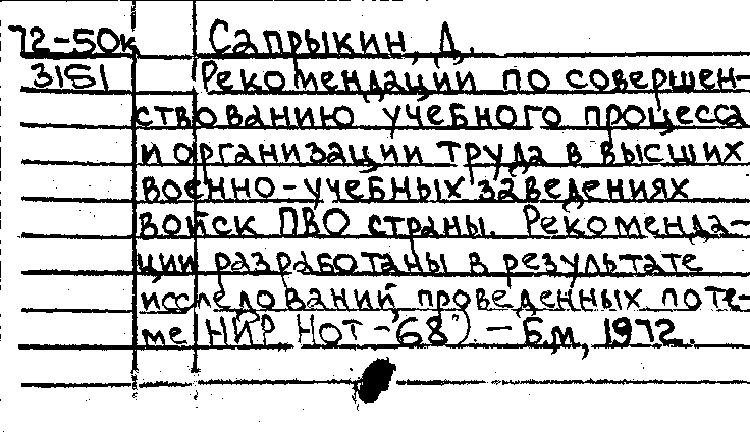 72-50к Сапрыкин, Д.
3151 Рекомендации по совершен-
ствованию учебного процесса
и организации труда в высших
военно-учебных заведениях
войск ПВО страны. Рекоменда-
ции разработаны в результате
исследований, проведенных по те-
ме (НИР НОТ-68") - Б.м., 1972.